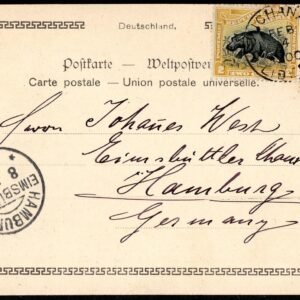 Deutschland.
Postkarte — Weltpostver
Carte postale — Union postale universelle.
Herrn Johannes West
Eimsbüttler Chau
Hamburg
Germany
HAMBU
EIMSBÜ
8
CHAN
FEB